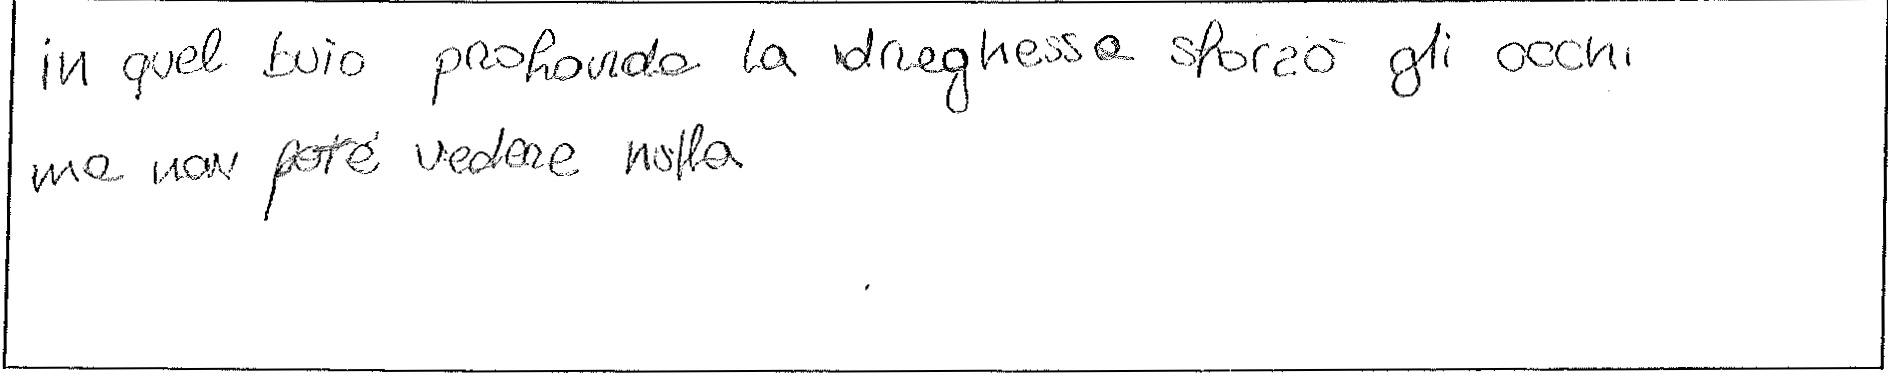 in quel buio profondo la draghessa sforzò gli occhi
ma non poté vedere nulla